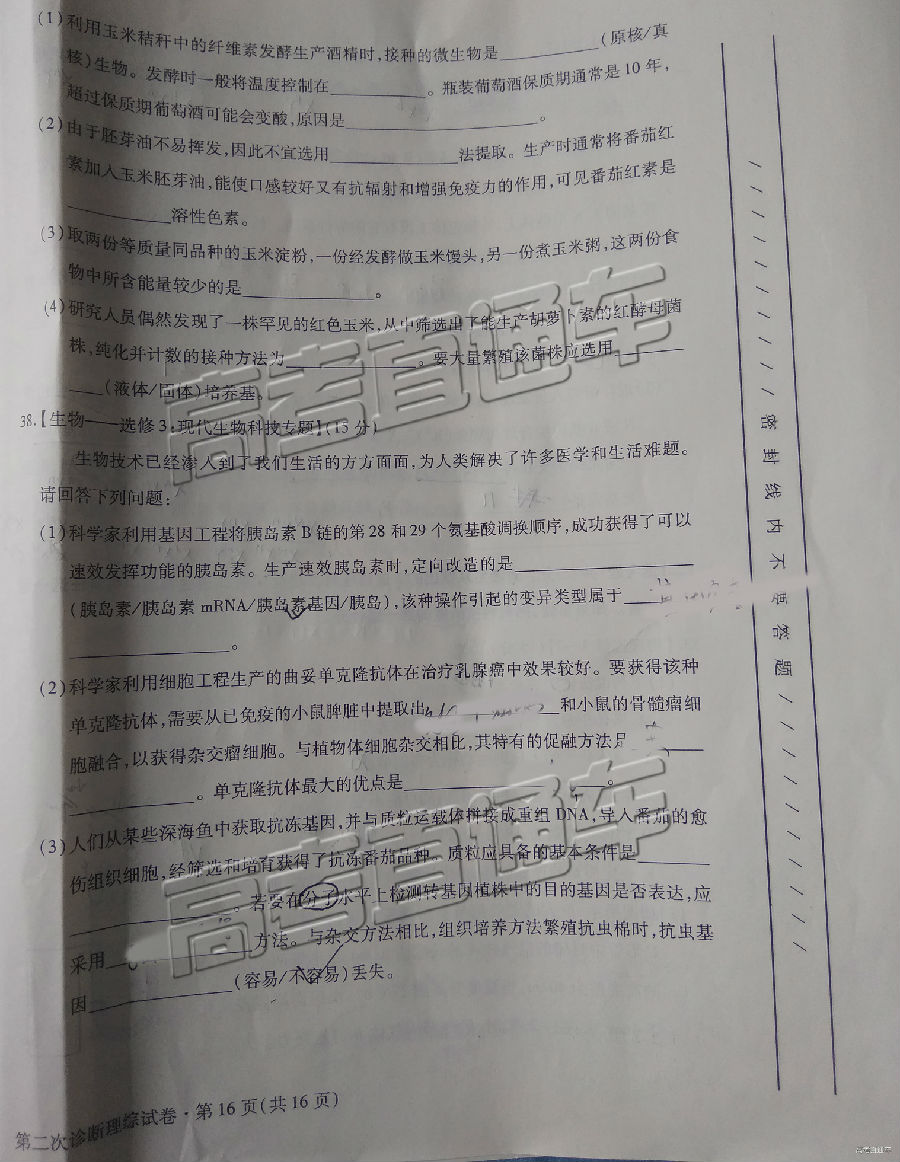 (1)利用玉米秸秆中的纤维素发酵生产酒精时,接种的微生物是__________(原核/真
核)生物。发酵时一般将温度控制在__________。瓶装葡萄酒保质期通常是10年,
超过保质期葡萄酒可能会变酸,原因是____________________。
(2)由于胚芽油不易挥发,因此不宜选用_____________法提取。生产时通常将番茄红
素加入玉米胚芽油,能使口感较好又有抗辐射和增强免疫力的作用,可见番茄红素是
__________溶性色素。
(3)取两份等质量同品种的玉米淀粉,一份经发酵做玉米馒头,另一份煮玉米粥,这两份食
物中所含能量较少的是_____________。
(4)研究人员偶然发现了一株罕见的红色玉米,从中筛选出了能生产胡萝卜素的红酵母菌
株,纯化并计数的接种方法为_____________。要大量繁殖该菌株应选用_______
___(液体/固体)培养基。
38.【生物——选修3:现代生物科技专题】(15分)
生物技术已经渗入到了我们生活的方方面面,为人类解决了许多医学和生活难题。
请回答下列问题:
(1)科学家利用基因工程将胰岛素B链的第28和29个氨基酸调换顺序,成功获得了可以
速效发挥功能的胰岛素。生产速效胰岛素时,定向改造的是_________________
(胰岛素/胰岛素mRNA/胰岛素基因/胰岛),该种操作引起的变异类型属于__________
________________。
(2)科学家利用细胞工程生产的曲妥单克隆抗体在治疗乳腺癌中效果较好。要获得该种
单克隆抗体,需要从已免疫的小鼠脾脏中提取出_____________和小鼠的骨髓瘤细
胞融合,以获得杂交瘤细胞。与植物体细胞杂交相比,其特有的促融方法是________
____________。单克隆抗体最大的优点是____________________。
(3)人们从某些深海鱼中获取抗冻基因,并与质粒运载体拼接成重组DNA,导入番茄的愈
伤组织细胞,经筛选和培育获得了抗冻番茄品种。质粒应具备的基本条件是_______
________________。若要在分子水平上检测转基因植株中的目的基因是否表达,应
采用______________方法。与杂交方法相比,组织培养方法繁殖抗虫棉时,抗虫基
因______________(容易/不容易)丢失。
第二次诊断理综试卷·第16页(共16页)
密封线内不要答题
高考直通车
高考直通车
高考直通车